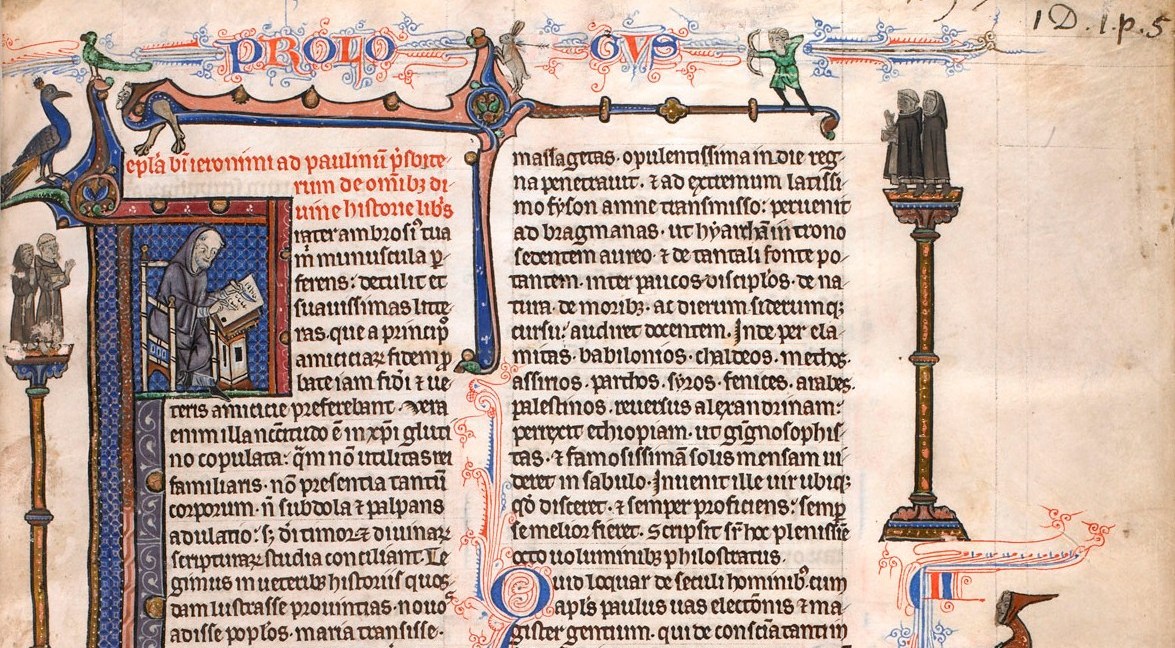 PROLO GUS
1 D. 1. p. 5
epl̄a bī ieronimi ad paulinū p̄sbite-
rum de omībꝫ di-
uine historie lib̾s
rater ambrosi' tua
m̄ munuscula ꝑ-
ferens: detulit et
suauissimas litte-
ras. que a principio
amiciciaꝝ fidem ꝓ-
bate iam fidī ⁊ ue-
teris amicicie preferebant. Vera
enim illa nc̄c̄itudo ē in xp̄i gluti
no copulata: qm̄ nō utilitas rei
familiaris. nō presentia tantū
corporum. ñ subdola ⁊ palpans
adulatio: sꝫ dī timor ⁊ diuinaꝝ
scripturaꝝ studia conciliant. Le-
gimus in ueteribꝫ historiis quos-
dam lustrasse prouintias. nouos
adisse pop̄los. maria transisse.
massagetas. opulentissima indie reg-
na penetrauit. ⁊ ad extremum latissi-
mo fyson amne transmisso: peruenit
ad bragmanas. ut hyarcham in trono
sedentem aureo. ⁊ de tantali fonte po-
tantem. inter paucos discip̄los. de na-
tura. de moribꝫ. ac dierum siderumqꝫ
cursu: audiret docentem. Inde per ela-
mitas. babilonios. chaldeos. medos.
assirios. parthos. syros. fenices. arabes.
palestinos. reuersus alexandrinam:
perrexit ethiopiam. ut gignosophis-
tas. ⁊ famosissimā solis mensam ui-
deret in sabulo. Inuenit ille uir ubiqꝫ
qd̄ disceret. ⁊ semper proficiens: semꝑ
se melior fieret. Scripsit sr̄ hoc plenissīe
octo uoluminibꝫ philostratus.
Quid loquar de seculi hominibꝫ. cum
apl̄s paulus uas electōnis ⁊ ma-
gister gentium. qui de consciā tanti in